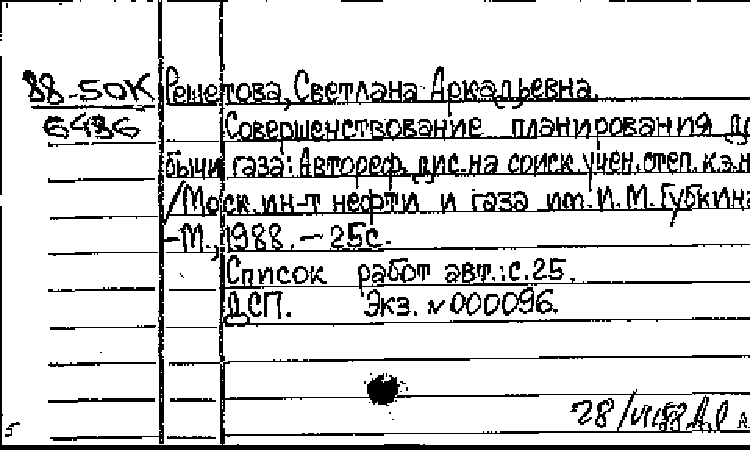 88-50К Решетова, Светлана Аркадьевна.
6436 Совершенствование планирования до
бычи газа: Автореф. дис. на соиск. учен. степ. к.э.н
/Моск. ин-т нефти и газа им. И. М. Губкина
-М., 1988. - 25с.
Список работ авт.: с. 25.
ДСП. Экз. N 000096.
28/VI 88
5